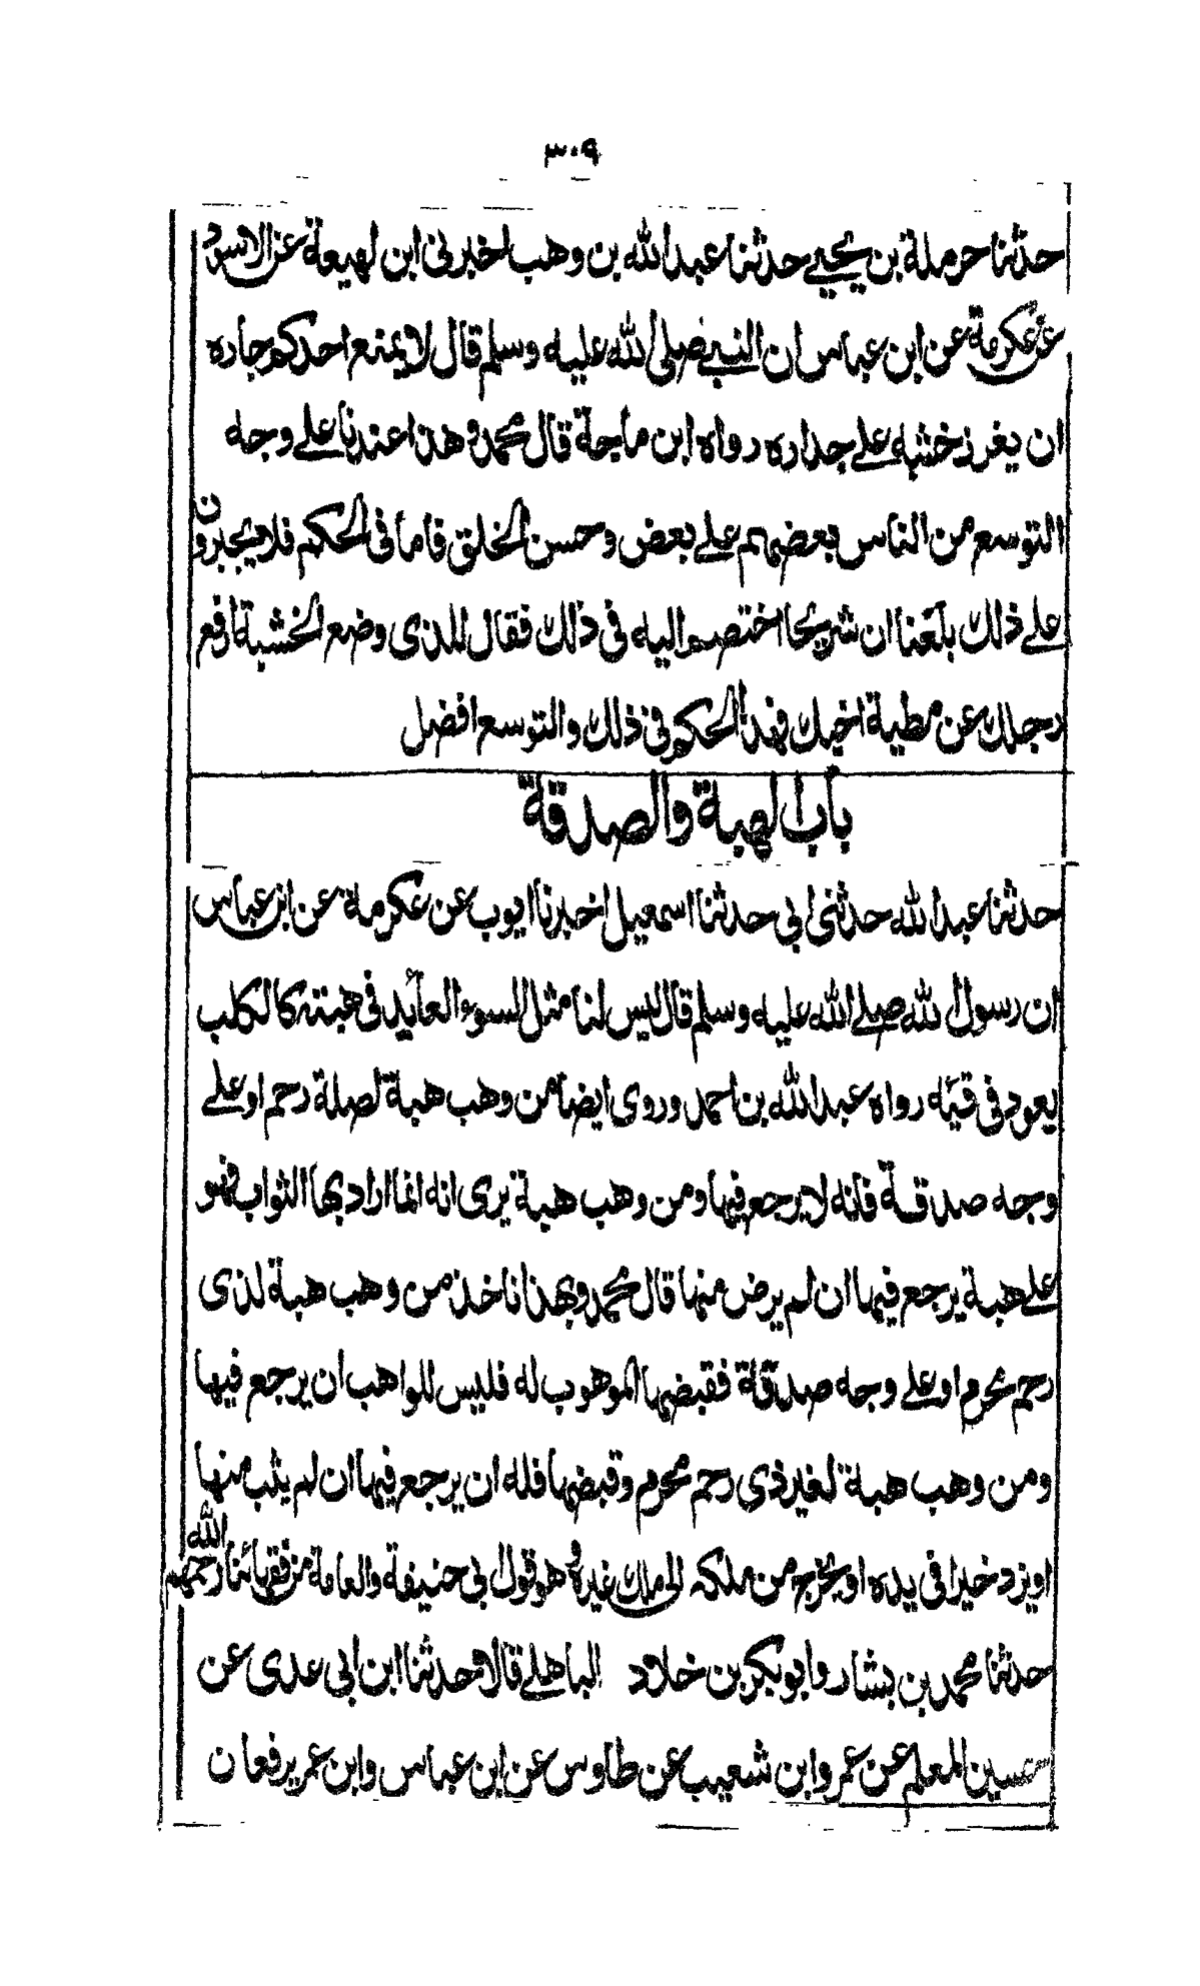 ٣٠٩
حدثنا حرملة بن يحيى حدثنا عبد الله بن وهب اخبرنى ابن لهيعة عن الاسود
عن عكرمة عن ابن عباس ان النبي صلى الله عليه وسلم قال لا يمنع احدكم جاره
ان يغرز خشبه على جداره رواه ابن ماجة قال محمد وهذا عندنا على وجه
التوسع من الناس بعضهم على بعض وحسن الخلق فاما فى الحكم فلا يجبرون
على ذلك بلغنا ان شريحا اختصم اليه فى ذلك فقال للذى وضع الخشبة ارفع
رجلك عن مطية اخيك فهذا الحكم فى ذلك والتوسع افضل
باب الهبة والصدقة
حدثنا عبد الله حدثنى ابى حدثنا اسمعيل اخبرنا ايوب عن عكرمة عن ابن عباس
ان رسول الله صلى الله عليه وسلم قال ليس لنا مثل السوء العائد فى هبته كالكلب
يعود فى قيئه رواه عبد الله بن احمد وروى ايضا من وهب هبة لصلة رحم او على
وجه صدقة فانه لا يرجع فيها ومن وهب هبة يرى انه انما اراد بها الثواب فهو
على هبة يرجع فيها ان لم يرض منها قال محمد وبهذا ناخذ من وهب هبة لذى
رحم محرم او على وجه صدقة فقبضها الموهوب له فليس للواهب ان يرجع فيها
ومن وهب هبة لغير ذى رحم محرم وقبضها فله ان يرجع فيها ان لم يثب منها
او يزد خيرا فى يده او يخرج من ملكه الى ملك غيره وهو قول ابى حنيفة والعامة من فقهائنا رحمهم الله
حدثنا محمد بن بشار وابو بكر بن خلاد الباهلى قالا حدثنا ابن ابى عدى عن
حسين المعلم عن عمرو ابن شعيب عن طاوس عن ابن عباس وابن عمر يرفعان